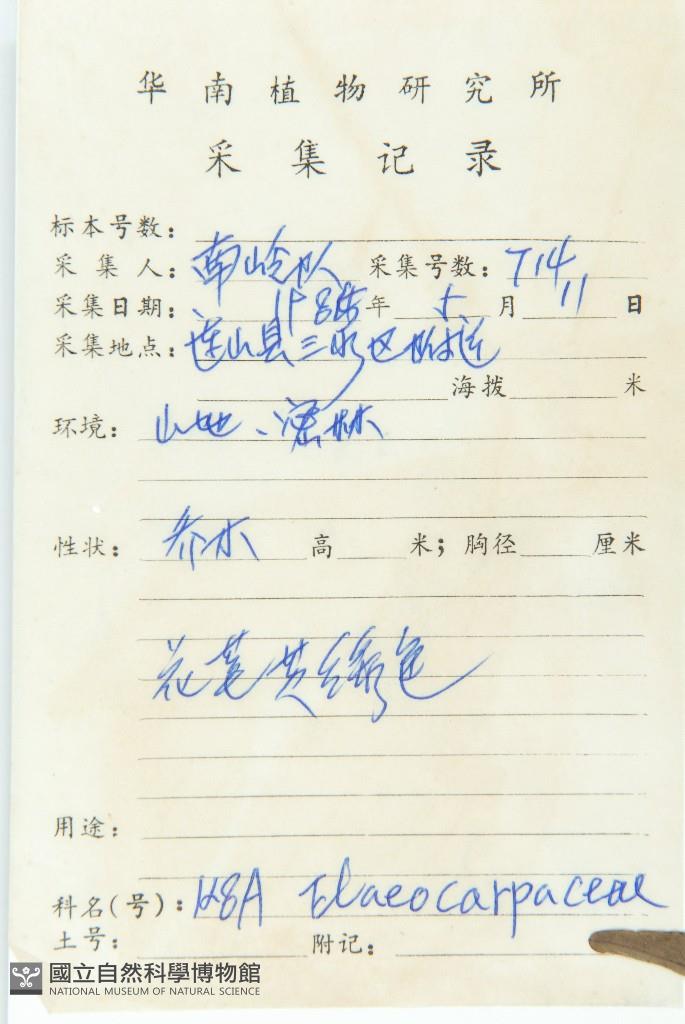 华南植物研究所
采集记录
标本号数：
采集人：南岭队 采集号数：714
采集日期：1985年5月11日
采集地点：连山县三水区附近
海拨 米
环境：山地、密林
性状：乔木 高 米；胸径 厘米
花萼黄绿色
用途：
科名(号)：128A Elaeocarpaceae
土号： 附记：
國立自然科學博物館
NATIONAL MUSEUM OF NATURAL SCIENCE